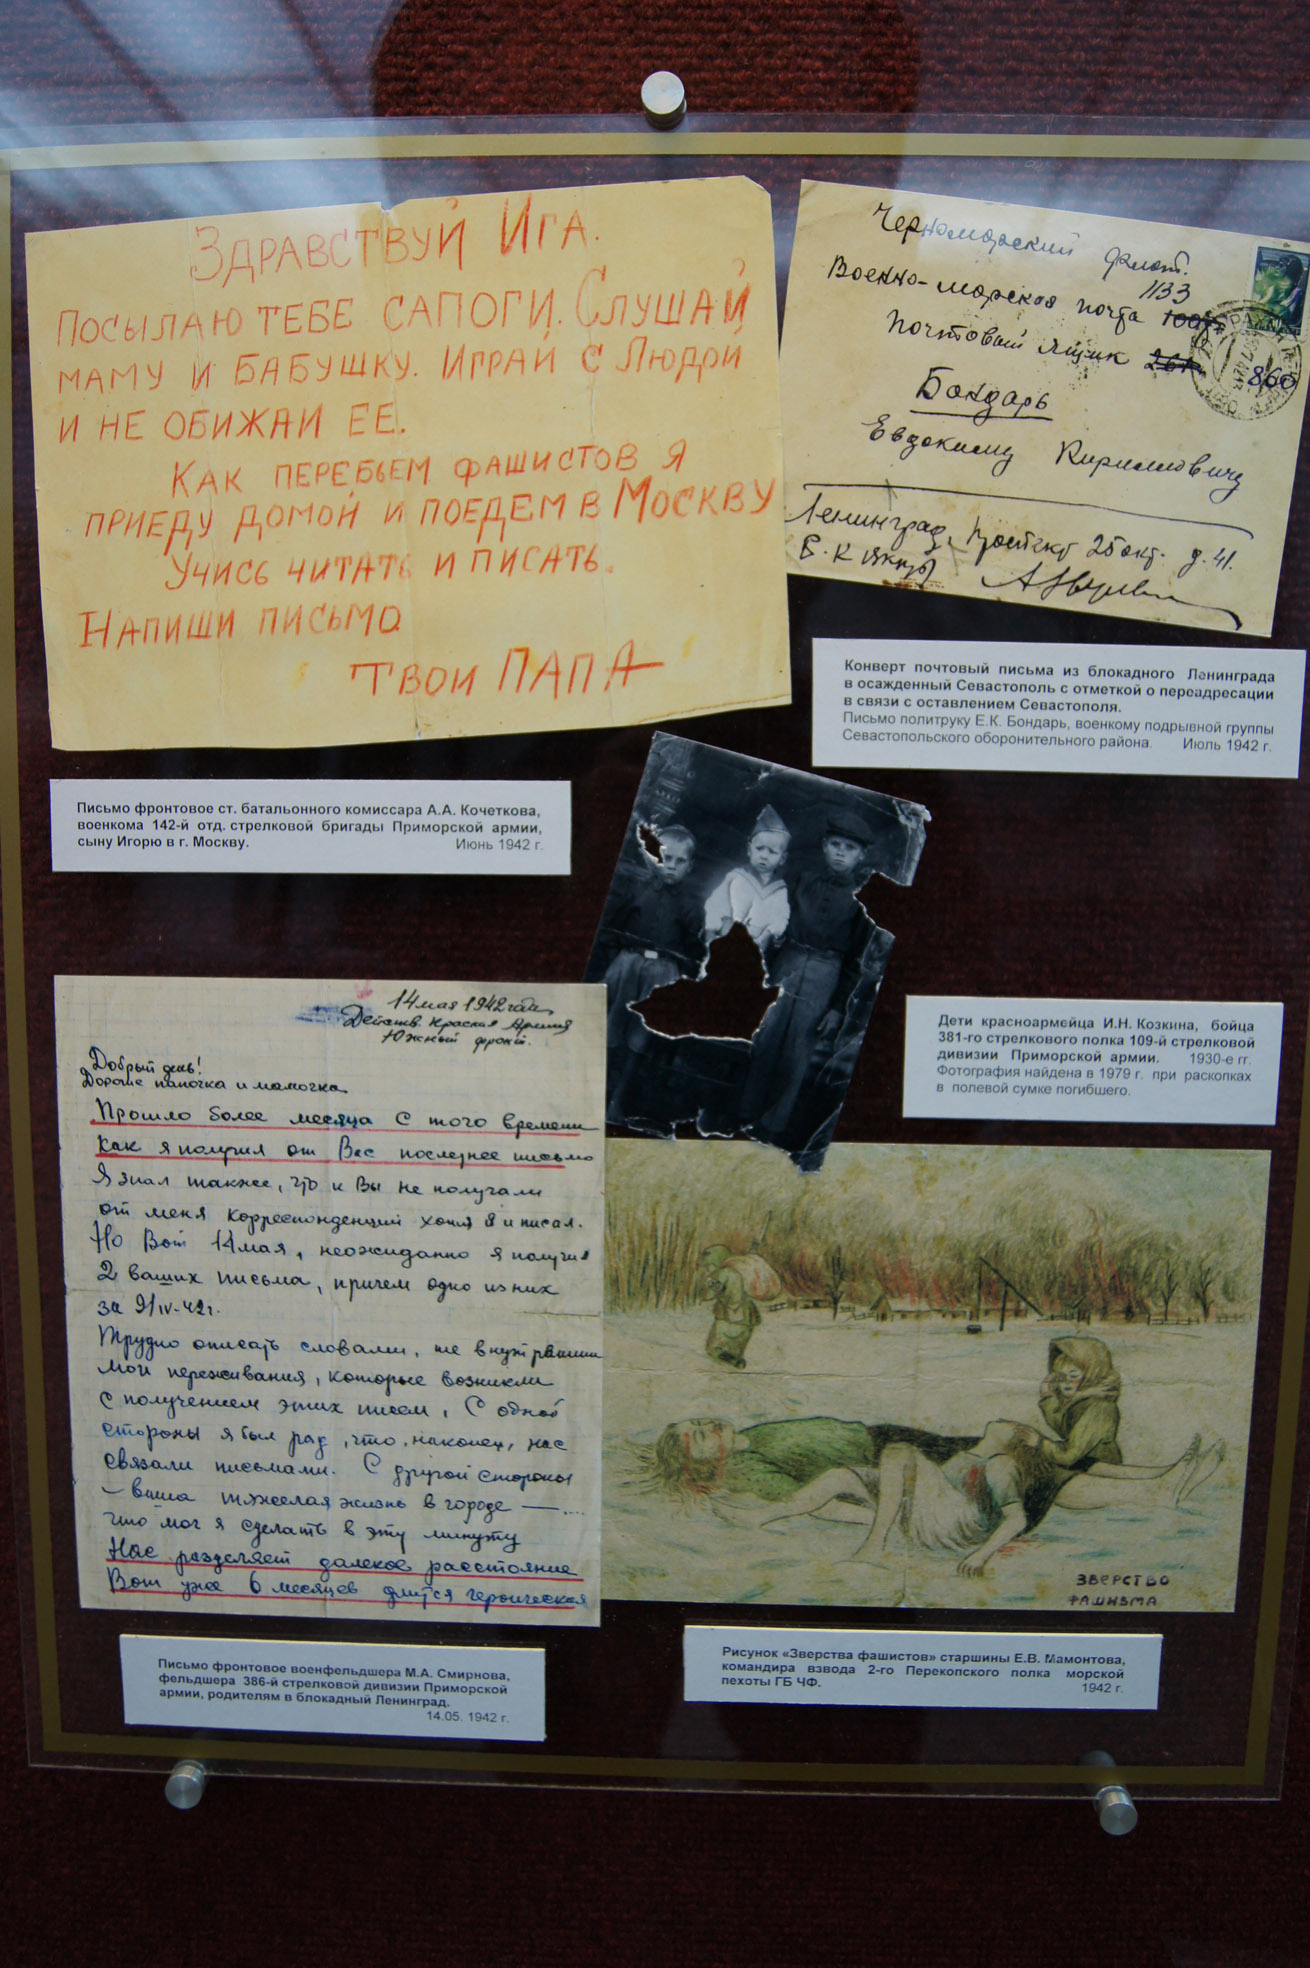 Здравствуй Ига.
Посылаю тебе сапоги. Слушай
маму и бабушку. Играй с Людой
и не обижай ее.
Как перебьем фашистов я
приеду домой и поедем в Москву
Учись читать и писать.
Напиши письмо
Твои ПАПА
Черноморский флот.
1133
Военно-морская почта
Почтовый ящик 860
Бондарь
Евдокиму Кирилловичу
Ленинград, Проспект 25 окт. д. 41.
Конверт почтовый письма из блокадного Ленинграда
в осажденный Севастополь с отметкой о переадресации
в связи с оставлением Севастополя.
Письмо политруку Е.К. Бондарь, военкому подрывной группы
Севастопольского оборонительного района. Июль 1942 г.
Письмо фронтовое ст. батальонного комиссара А.А. Кочеткова,
военкома 142-й отд. стрелковой бригады Приморской армии,
сыну Игорю в г. Москву. Июнь 1942 г.
Дети красноармейца И.Н. Козкина, бойца
381-го стрелкового полка 109-й стрелковой
дивизии Приморской армии. 1930-е гг.
Фотография найдена в 1979 г. при раскопках
в полевой сумке погибшего.
14 мая 1942 года
Действ. Красная Армия
Южный фронт.
Добрый день!
Дорогие папочка и мамочка
Прошло более месяца с того времени
Как я получил от Вас последнее письмо
Я знал также, что и Вы не получали
от меня корреспонденций хотя я и писал.
Но Вот 14 мая, неожиданно я получил
2 ваших письма, причем одно из них
за 9/IV-42г.
Трудно описать словами, те внутренние
мои переживания, которые возникли
с получением этих писем, С одной
стороны я был рад, что, наконец, нас
связали письмами. С другой стороны
– ваша тяжелая жизнь в городе —
что мог я сделать в эту минуту
Нас разделяет далекое расстояние
Вот уже 6 месяцев длится героическая
ЗВЕРСТВО
ФАШИЗМА
Письмо фронтовое военфельдшера М.А. Смирнова,
фельдшера 386-й стрелковой дивизии Приморской
армии, родителям в блокадный Ленинград.
14.05. 1942 г.
Рисунок «Зверства фашистов» старшины Е.В. Мамонтова,
командира взвода 2-го Перекопского полка морской
пехоты ГБ ЧФ. 1942 г.